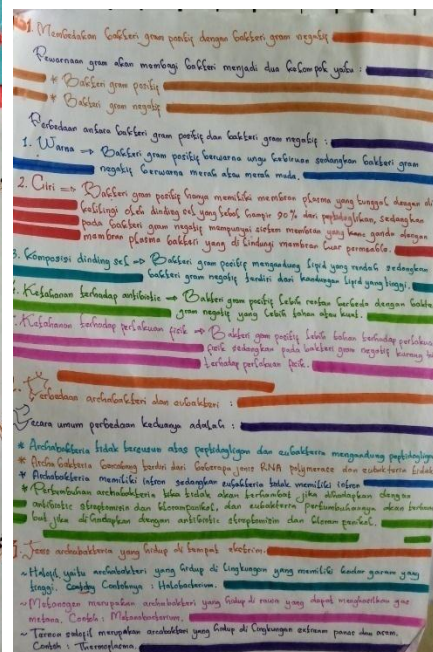 1. Membedakan bakteri gram positif dengan bakteri gram negatif
Pewarnaan gram akan membagi bakteri menjadi dua kelompok yaitu :
* Bakteri gram positif
* Bakteri gram negatif
Perbedaan antara bakteri gram positif dan bakteri gram negatif :
1. Warna => Bakteri gram positif berwarna ungu kebiruan sedangkan bakteri gram
negatif berwarna merah atau merah muda.
2. Ciri => Bakteri gram positif hanya memiliki membran plasma yang tunggal dengan di
kelilingi oleh dinding sel yang tebal hampir 90% dari peptidoglikan, sedangkan
pada bakteri gram negatif mempunyai sistem membran yang ganda dengan
membran plasma bakteri yang di lindungi membran luar permeable.
3. Komposisi dinding sel => Bakteri gram positif mengandung lipid yang rendah sedangkan
bakteri gram negatif terdiri dari kandungan lipid yang tinggi.
Ketahanan terhadap antibiotic => Bakteri gram positif lebih rentan berbeda dengan bakte
gram negatif yang lebih tahan atau kuat.
Ketahanan terhadap perlakuan fisik => Bakteri gram positif lebih tahan terhadap perlakua
fisik sedangkan pada bakteri gram negatif kurang ta
terhadap perlakuan fisik.
Perbedaan archabakteri dan eubakteri :
Secara umum perbedaan keduanya adalah :
* Archabakteria tidak tersusun atas peptidogligan dan eubakteria mengandung peptidogliga
* Archabakteria terdiri dari beberapa jenis RNA polymerace dan eubakteria tidak
* Archabakteria memiliki intron sedangkan eubakteria tidak memiliki intron
* Pertumbuhan archabakteria bila tidak akan terhambat jika dihadapkan dengan
antibiotic streptomisin dan kloramponikol, dan eubakteria pertumbuhannya akan terham
bat jika di hadapkan dengan antibiotic streptomizin dan kloram panikol.
Jenis archabakteria yang hidup di tempat ekstrim.
~ Halofil yaitu archabakteri yang hidup di lingkungan yang memiliki kadar garam yang
tinggi. Contohnya : Halobacterium.
~ Metanogen merupakan archabakteri yang hidup di rawa yang dapat menghasilkan gas
metana. Contoh : Metanobacterium.
~ merupakan arcabakteri yang hidup di lingkungan extream panas dan asam.
Contoh : Thermoplasma.